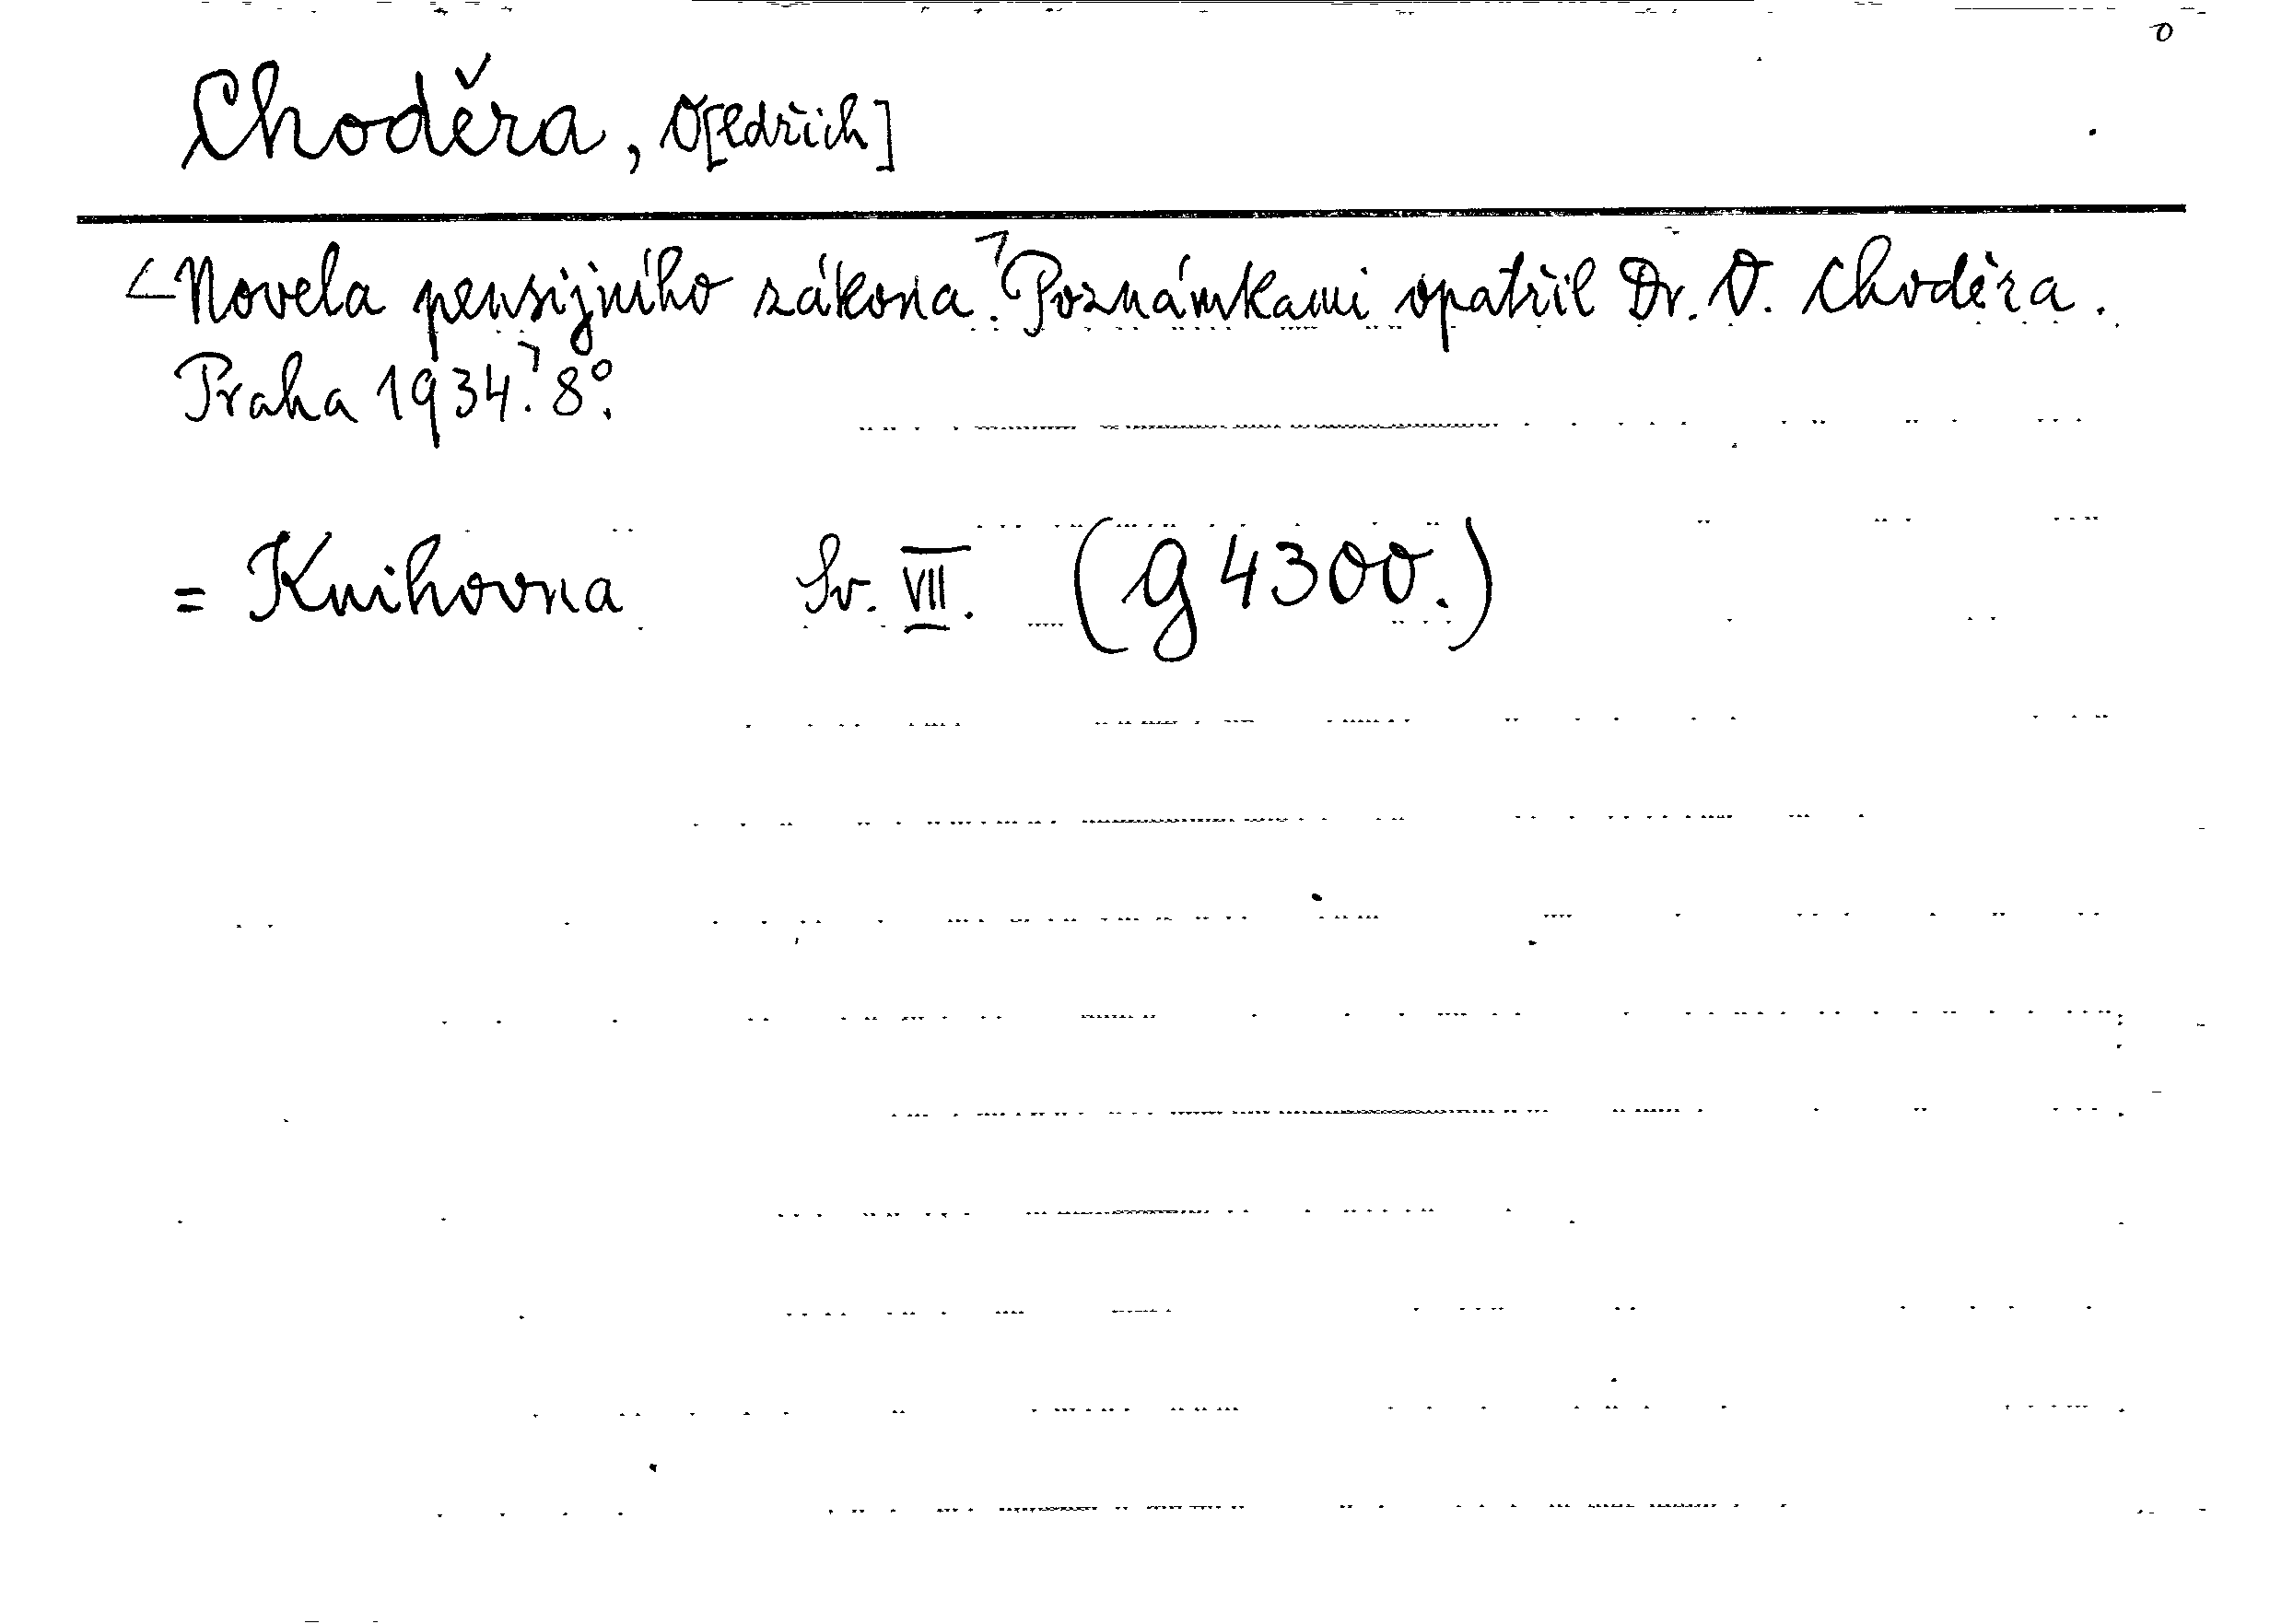 o
Choděra, O[ldřich]
Novela pensijního zákona. Poznámkami opatřil Dr. O. Choděra.
Praha 1934. 8°.
= Knihovna Sv. VII. (g 4300.)